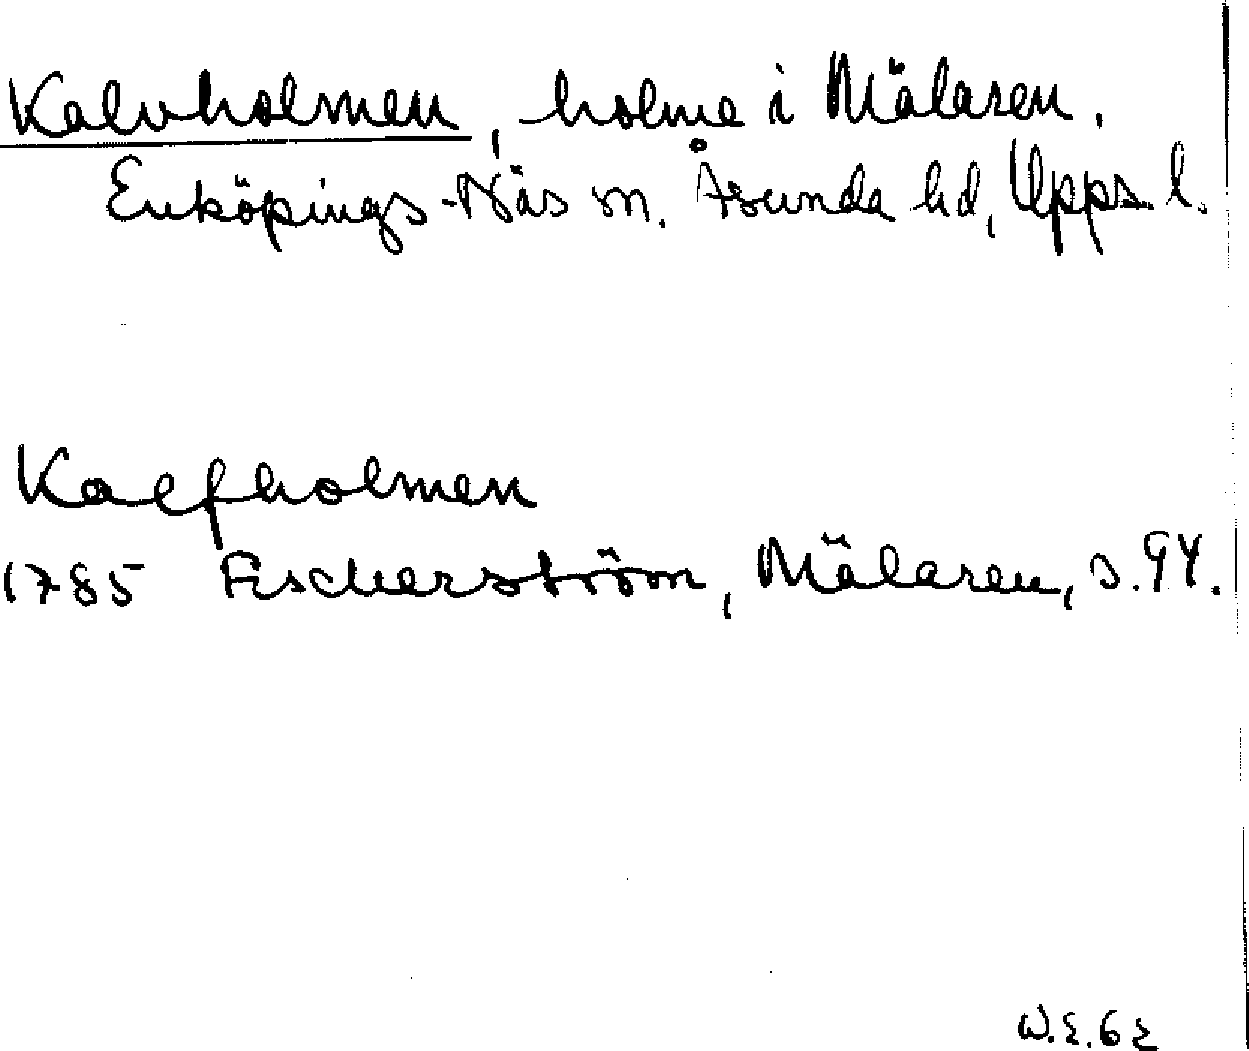 Kalvholmen, holme i Mälaren.
Enköpings-Näs sn. Åsunda hd, Upps. l.
Kalfholmen
1785 Fischerström, Mälaren, s. 94.
W.E.62